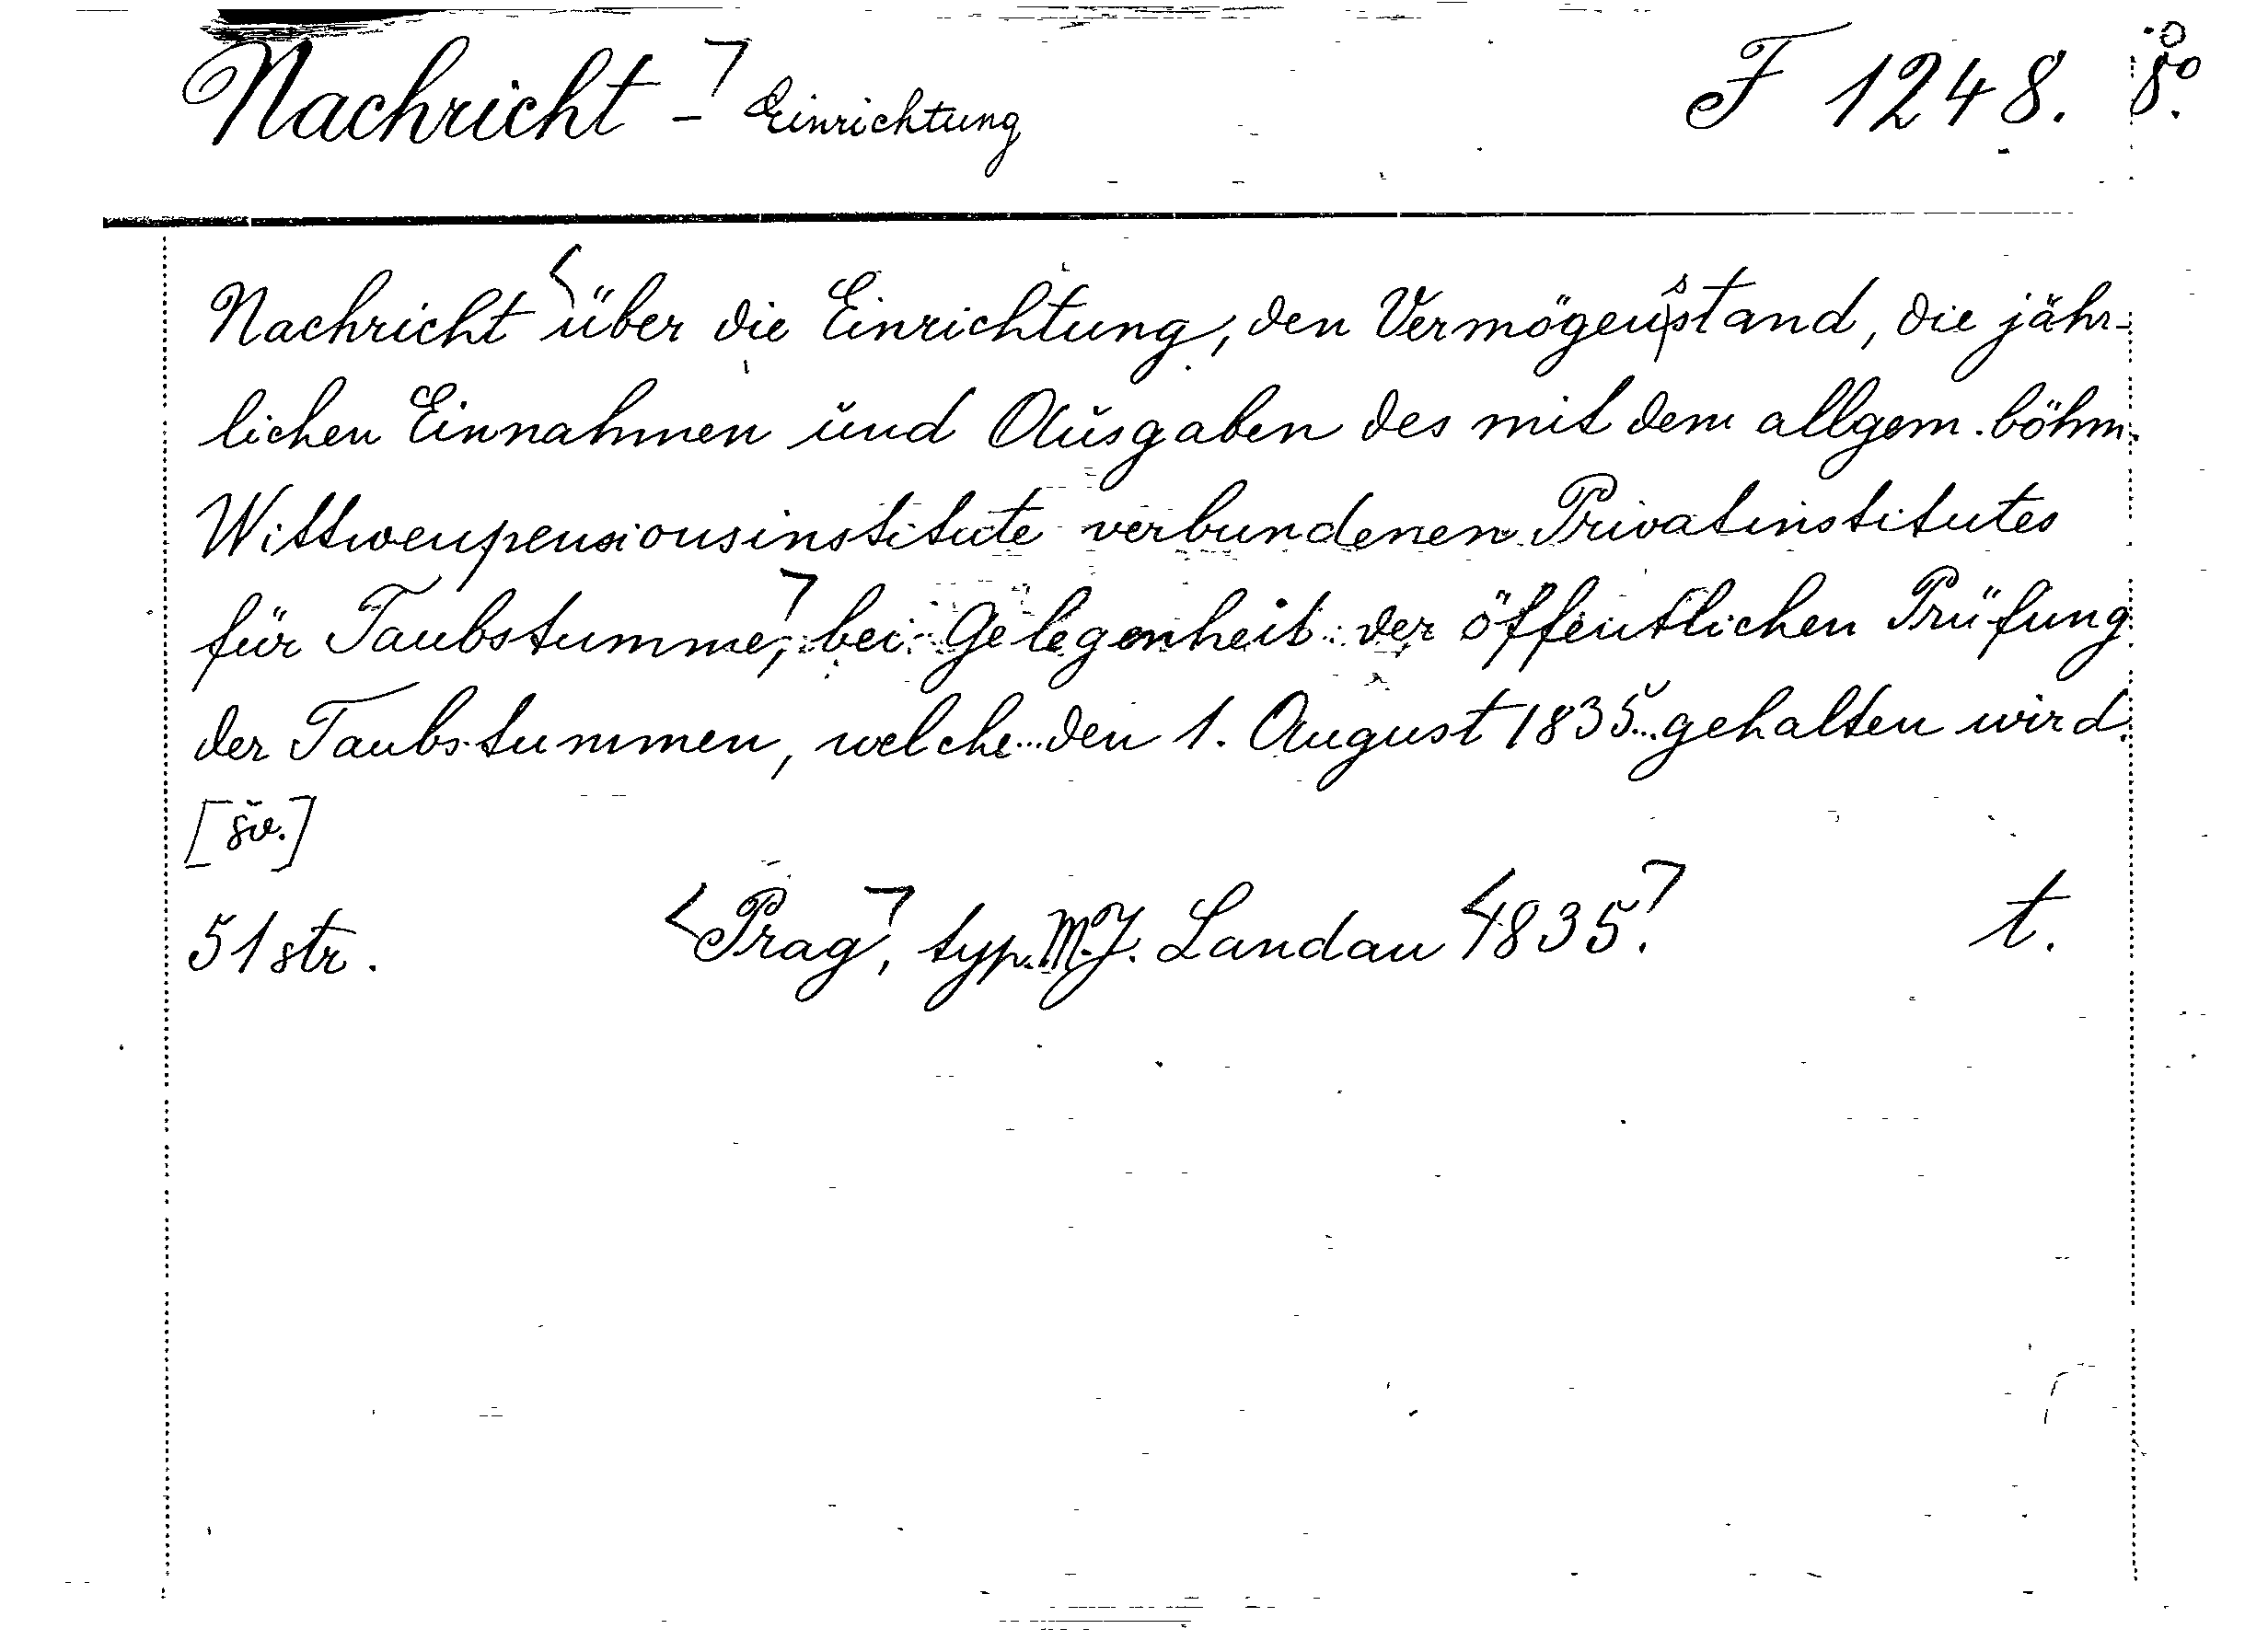 Nachricht - Einrichtung F 1248. 8°.
Nachricht über die Einrichtung, den Vermögensstand, die jähr-
lichen Einnahmen und Ausgaben des mit dem allgem. böhm.
Wittwenpensionsinstitute verbundenen Privatinstitutes
für Taubstumme, bei Gelegenheit der öffentlichen Prüfung
der Taubstummen, welche den 1. August 1835 gehalten wird.
[šv.]
51 str. Prag, typ. M.J. Landau 1835. t.